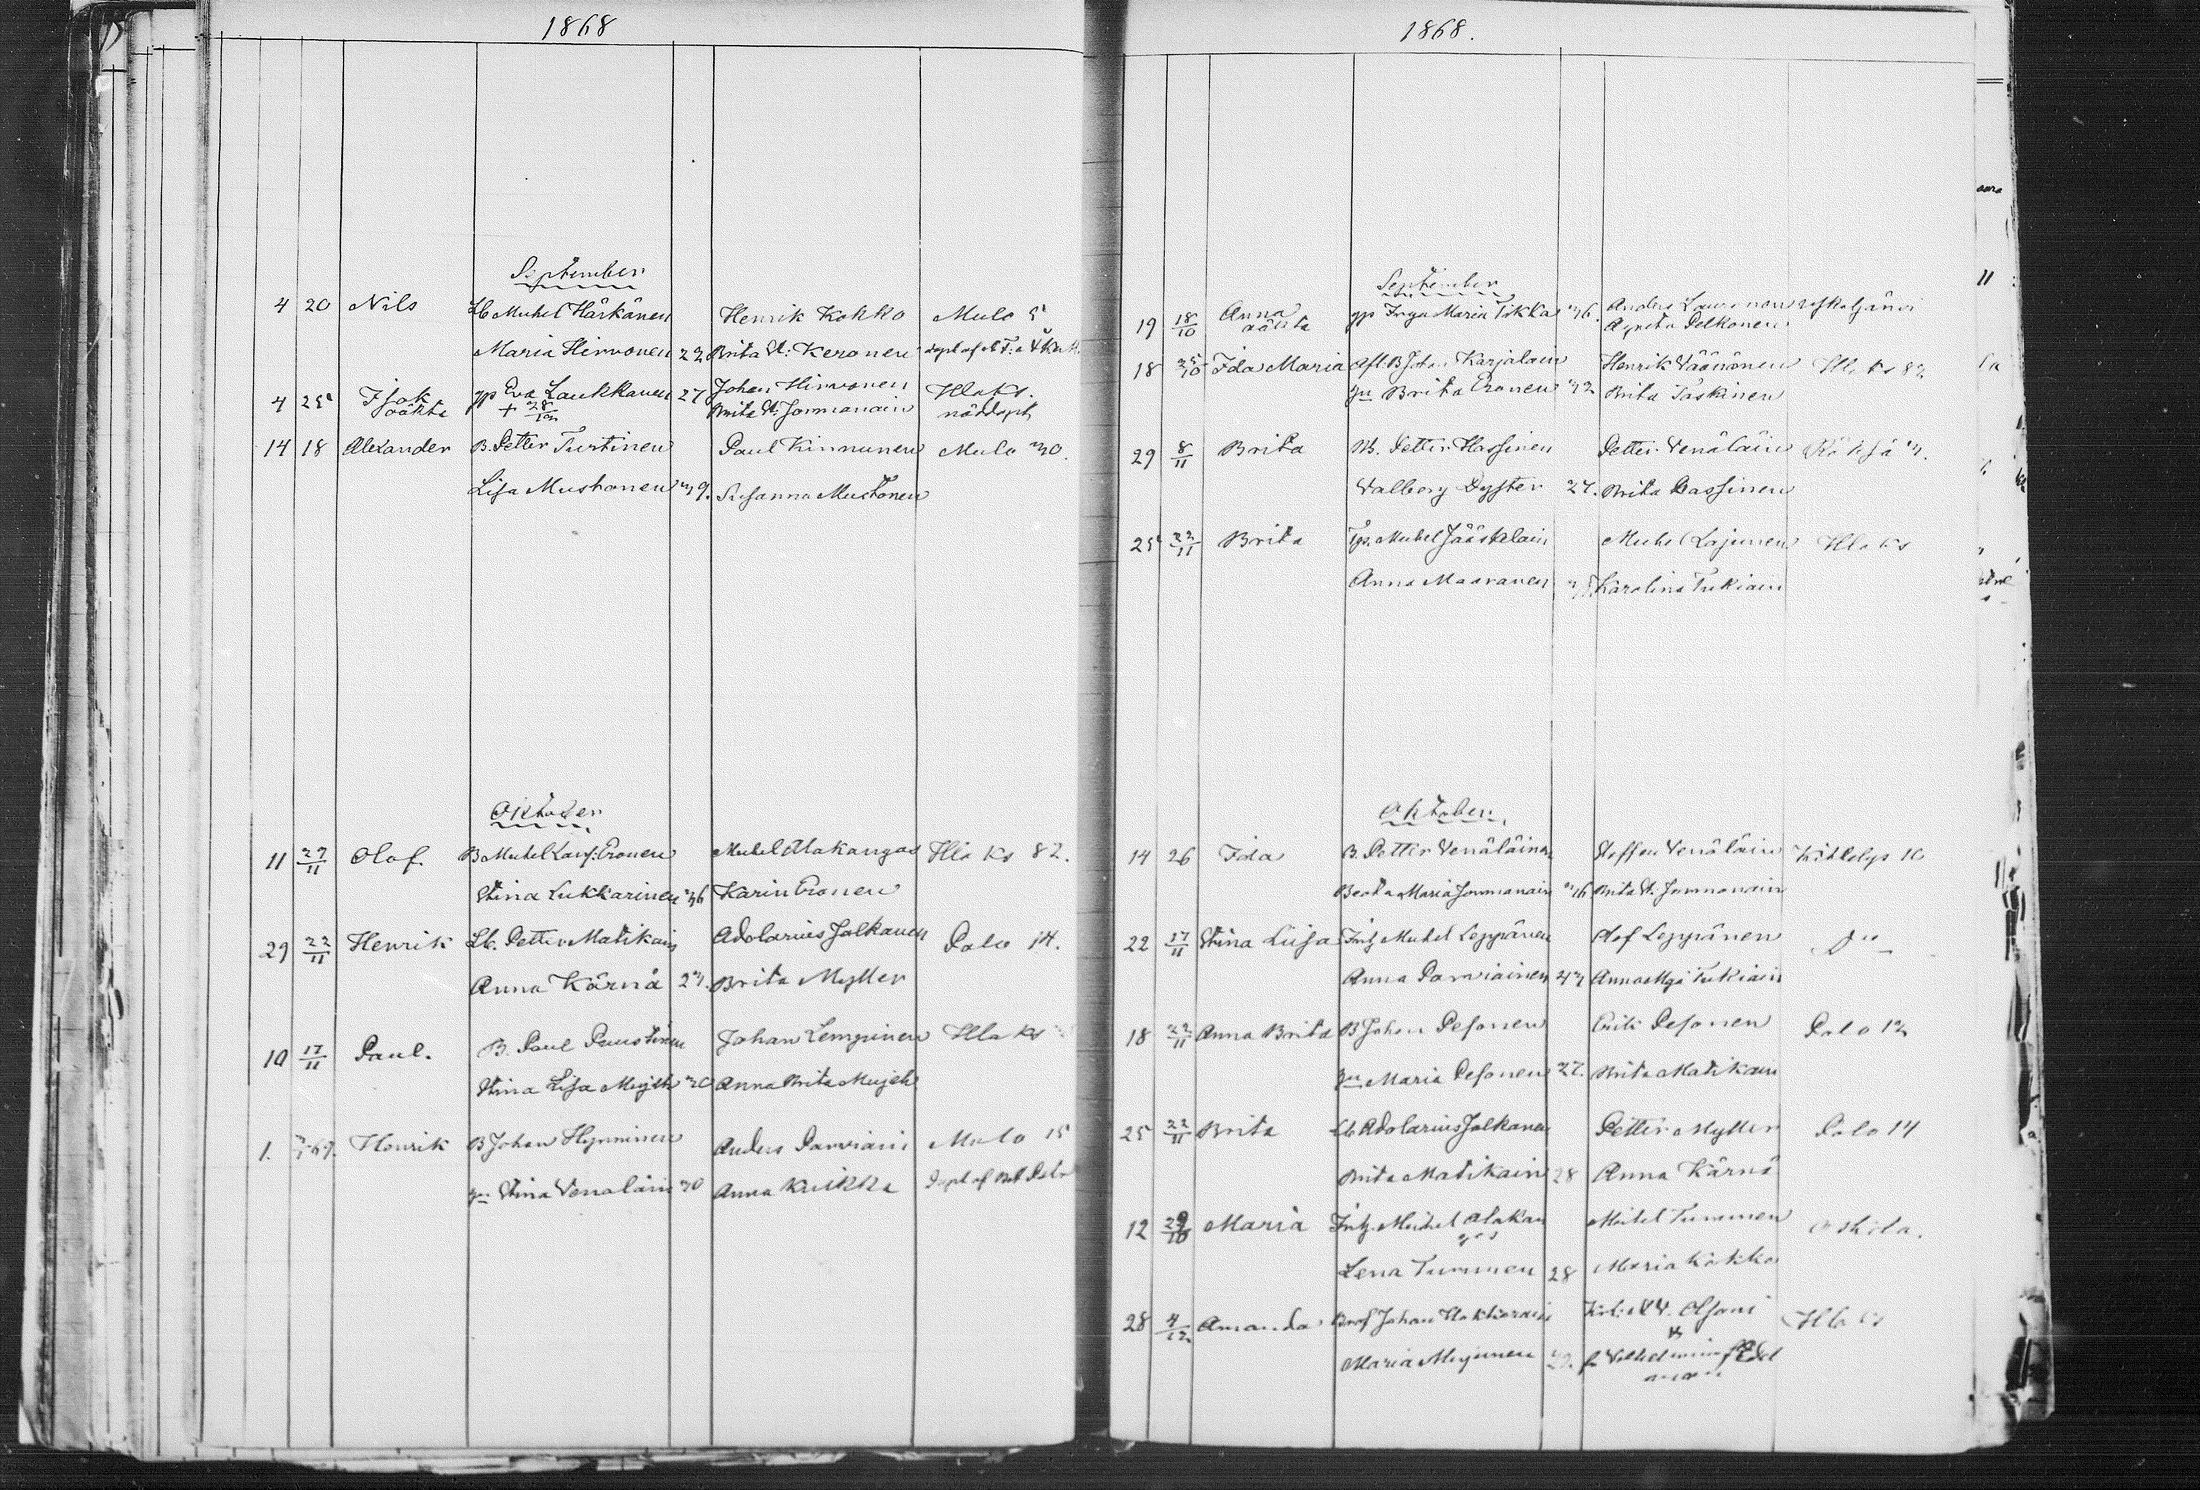 1868
September
4 20 Nils Lb Mickel Härkänen Henrik Kokko Mulo 5
Maria Hirvonen 22 Brita St: Keronen
4 25 Isak oäkta gp Eva Laukkanen 27 Johan Hirvonen Hlaks.
+ 28/12 Brita St. Jormanain nöddopt
14 18 Alexander B. Petter Turtinen Paul Kinnunen Mulo 30.
Lisa Mustonen 39. Susanna Mustonen
Oktober
11 27/11 Olof. B Mickel Eronen Mickel Alakangas Hlaks 82.
Stina Lukkarinen 36 Karin Eronen
29 22/11 Henrik Lb. Petter Matikain Adolarius Jalkanen Palo 14.
Anna Kärnä 23. Brita Myller
10 17/11 Paul. B. Paul Puustinen Johan Lempinen Hlaks
Stina Lisa Mujeh 30 Anna Brita Mujeh
1. Henrik B Johan Hynninen Anders Parviain Mulo 15
gn Stina Venäläin 30 Anna Kuikka
1868.
September
19 18/10 Anna oäkta gp Inga Maria Tikka 36.
Agneta Pelkonen
18 25/10 Ida Maria Afl. B Johan Karjalain Henrik Väänönen Hlaks 82
gn Brita Eronen 32 Brita Taskinen
29 8/11 Brita Petter Hassinen Petter Venäläin
Valborg Dyster 27. Brita Hassinen
25 22/11 Brita Mickel Jääskelain Mickel Lajunen Hlaks
Anna Maaranen Karolina Tukiain
Oktober
14 26 Ida B. Petter Venäläinen Staffan Venäläin
Beata Maria Jormanain 36 Brita St. Jormanain
22 17/11 Stina Lisa Inh Mickel Leppänen Olof Leppänen Do
Anna Parviainen 43 Anna Mga Tukiain
18 22/11 Anna Brita B Johan Pesonen Erik Pesonen Palo 12
gn Maria Pesonen 27. Brita Matikain
25 22/11 Brita Lb Adolarius Jalkanen Petter Myller Palo 14
Brita Matikain 28 Anna Kärnä
12 29/10 Maria Inh. Mickel Alakan
gas Mickel Tuminen
Lena Tuminen 28 Maria Kokko
28 4/12 Amanda Johan
Maria